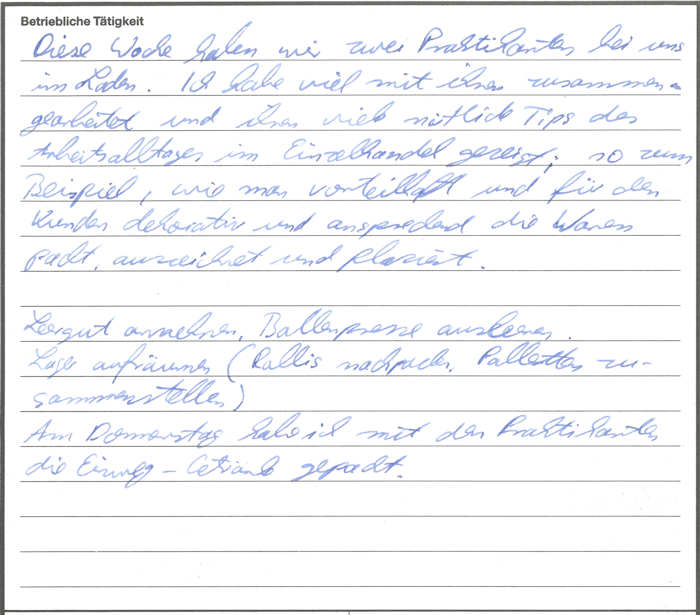 Betriebliche Tätigkeit
Diese Woche haben wir zwei Praktikanten bei uns
im Laden. Ich habe viel mit ihnen zusammen-
gearbeitet und ihnen viele nützlich Tips des
Arbeitsalltages im Einzelhandel gezeigt; so zum
Beispiel, wie man vorteilhaft und für den
Kunden dekorativ und ansprechend die Waren
packt, auszeichnet und plaziert.
Leergut annehmen, Ballenpresse ausleeren.
Lager aufräumen (Rollis nachpacken, Palletten zu-
sammenstellen)
Am Donnerstag habe ich mit den Praktikanten
die Einweg-Getränke gepackt.